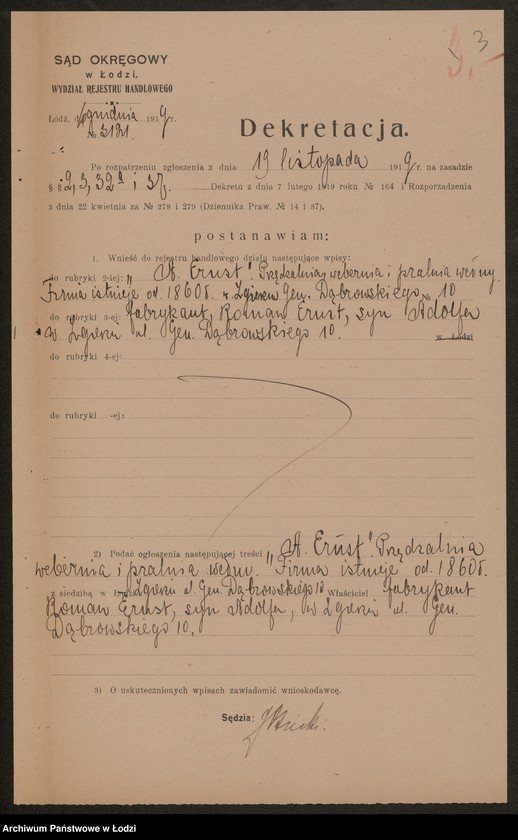 3
SĄD OKRĘGOWY
w Łodzi.
WYDZIAŁ REJESTRU HANDLOWEGO
Łódź, d. grudnia 1919 r.
№ 3131
Dekretacja.
Po rozpatrzeniu zgłoszenia z dnia 19 listopada 1919 r. na zasadzie
§ § 2, 3, 32a i 37. Dekretu z dnia 7 lutego 1919 roku № 164 i Rozporządzenia
z dnia 22 kwietnia za № 278 i 279 (Dziennika Praw. № 14 i 37),
postanawiam:
1. Wnieść do rejestru handlowego działu następujące wpisy:
do rubryki 2-iej: „A. Ernst". Przędzalnia, webernia i pralnia wełny.
Firma istnieje od 1860 r. w Zgierzu Gen. Dąbrowskiego № 10
do rubryki 3-ej: fabrykant, Roman Ernst, syn Adolfa
w Zgierzu ul. Gen. Dąbrowskiego 10. w Łodzi
do rubryki 4-ej:
do rubryki -ej:
2) Podać ogłoszenia następującej treści „A. Ernst". Przędzalnia
webernia i pralnia wełny. Firma istnieje od 1860 r.
z siedzibą w Zgierzu ul. Gen. Dąbrowskiego 10 Właściciel fabrykant
Roman Ernst, syn Adolfa, w Zgierzu ul. Gen.
Dąbrowskiego 10.
3) O uskutecznionych wpisach zawiadomić wnioskodawcę.
Sędzia:
Archiwum Państwowe w Łodzi